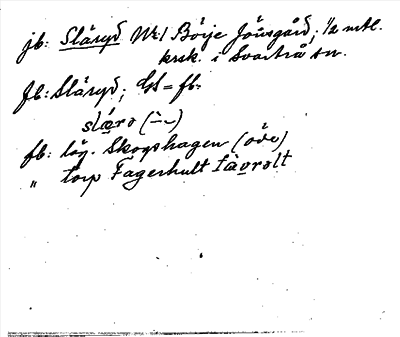 jb: Släryd Nr 1 Börje Jönsgård; 1/2 mtl.
krsk. i Svartrå sn.
fb: Släryd; Gs = fb:
slæ̀rə (`-~)
fb: läg. Skogshagen (öde)
" torp Fagerhult